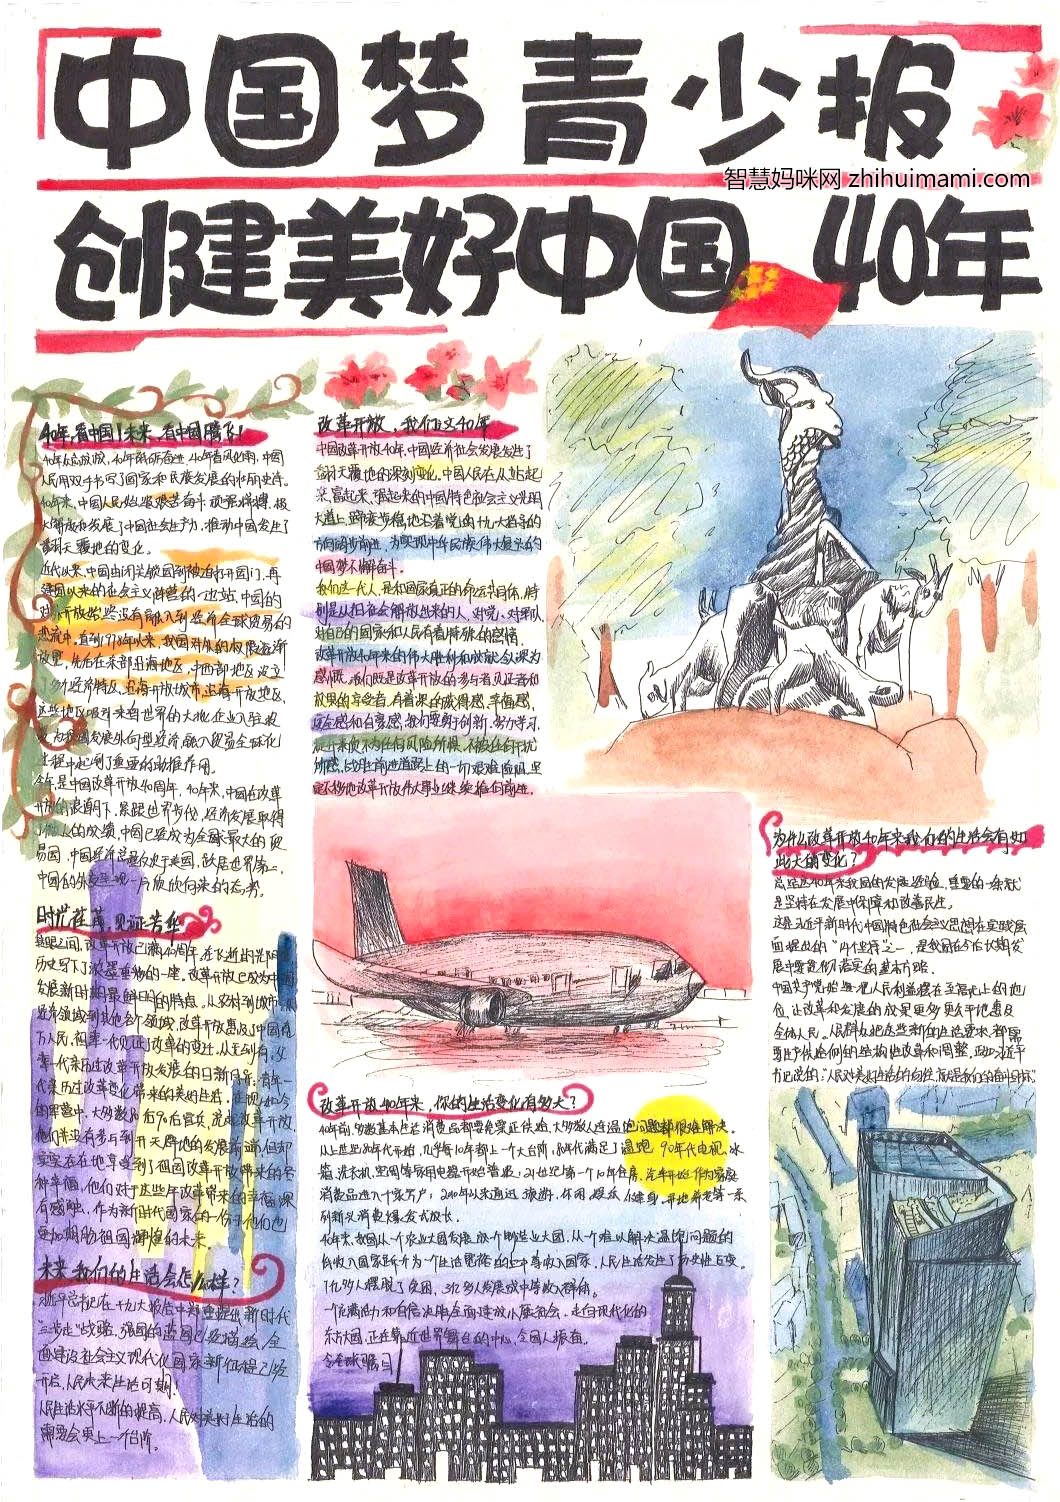 中国梦青少报
智慧妈咪网 zhihuimami.com
创建美好中国 40年
40年，看中国！未来，看中国腾飞！
40年众志成城，40年砥砺奋进，40年春风化雨，中国
人民用双手书写了国家和民族发展的壮丽史诗。
40年来，中国人民始终艰苦奋斗、顽强拼搏，极
大解放和发展了中国社会生产力，推动中国发生了
翻天覆地的变化。
近代以来，中国由闭关锁国到被迫打开国门，再
建国以来的社会主义阵营的一边站，中国的
对外开放始终没有融入到经济全球贸易的
潮流中。直到1978年以来，我国对外的权限逐渐
放宽，先后在东部沿海地区，中西部地区设立
了多个经济特区，沿海开放城市，沿海开放地区，
这些地区吸引来自世界的大批企业入驻投
资，为我国发展外向型经济，融入贸易全球化
进程中起到了重要的助推作用。
今年是中国改革开放40周年，40年来，中国在改革
开放的浪潮下，紧跟世界步伐，经济发展取得
了惊人的成绩，中国已经成为全球最大的贸
易国，中国经济总量仅次于美国，跃居世界第二，
中国的外交呈现一片欣欣向荣的态势。
时光荏苒，见证芳华
转眼之间，改革开放已满40周年，在飞逝的光阴里
历史写下了浓墨重彩的一笔。改革开放已成为中国
发展新时期最鲜明的特点，从农村到城市，从
经济领域到其他各个领域，改革开放惠及了中国亿
万人民，祖辈一代见证了改革的变迁，从无到有，父
辈一代亲历过改革开放发展的日新月异；青年一
代亲历过改革变化带来的美好生活。在现如今
的军营中，大多数80后90后官兵，完成改革开放，
他们并没有参与到开天辟地的发展前酒，但却
实实在在地享受到了祖国改革开放带来的各
种幸福，他们对于这些年改革带来的幸福深
有感触，作为新时代国家的一份子他们也
更加期盼祖国辉煌的未来。
未来，我们的生活会怎么样？
习近平总书记在十九大报告中郑重提出新时代
“三步走”战略，强国的蓝图已经描绘，全
面建设社会主义现代化国家新征程已经
开启，人民未来生活可期！
人民生活水平不断的提高，人民对美好生活的
需要会更上一个台阶。
改革开放，我们这40年
中国改革开放40年，中国经济社会发展发生了
翻天覆地的深刻变化，中国人民在从站起
来，富起来，强起来的中国特色社会主义光明
大道上，踏实步稳，地沿着党的十九大指导的
方向阔步前进，为实现中华民族伟大复兴的
中国梦不懈奋斗。
我们这一代人，是和国家真正的命运共同体，特
别是从旧社会解放出来的人，对党、对军队、
对自己的国家和人民有着特殊的感情。
改革开放40年来的伟大胜利和成就令人深为
感慨，我们既是改革开放的参与者见证者和
成果的享受者，有着深的获得感，幸福感，
安全感和自豪感，我们要勇于创新，努力学习，
在未来做不为任何风险所惧，不被任何干扰
所惑，战胜前进道路上的一切艰难险阻，坚
定不移地改革开放伟大事业继续推向前进。
改革开放40年来，你的生活变化有多大？
40年前，多数基本生活消费品都要凭票证供给，大多数人连温饱问题都很难解决。
从上世纪80年代开始，几乎每10年都上一个大台阶，80年代满足了温饱，90年代电视、冰
箱、洗衣机、空调等家用电器开始普及；21世纪第一个10年住房、汽车开始作为家庭
消费品进入千家万户；2010年以来通迅、旅游、休闲、娱乐、健身、异地养老等一系
列新兴消费爆发式成长。
40年来，我国从一个农业大国发展成个制造业大国，从一个难以解决温饱问题的
低收入国家跃升为一个生活宽裕的上中等收入国家，人民生活发生了历史性巨变。
7亿多人摆脱了贫困，3亿多人发展成中等收入群体。
一个充满活力和自信决胜全面建成小康社会、走向现代化的
东方大国，正在靠近世界舞台的中心，令国人振奋，
令全球瞩目
为什么改革开放40年来我们的生活会有如
此大的变化？
总结这40年来我国的发展经验，重要的一条就
是坚持在发展中保障和改善民生。
这是习近平新时代中国特色社会主义思想在实践层
面提出的“14个坚持”之一，是我国今后长期发
展中需要我们落实的基本方略。
中国共产党始终把人民利益摆在至高无上的地
位，让改革和发展的成果更多更公平地惠及
全体人民。人民群众把这些新的生活要求，都需
要进行供给侧的结构性改革和调整。正如习近平
书记说的：“人民对美好生活的向往，就是我们的奋斗目标”